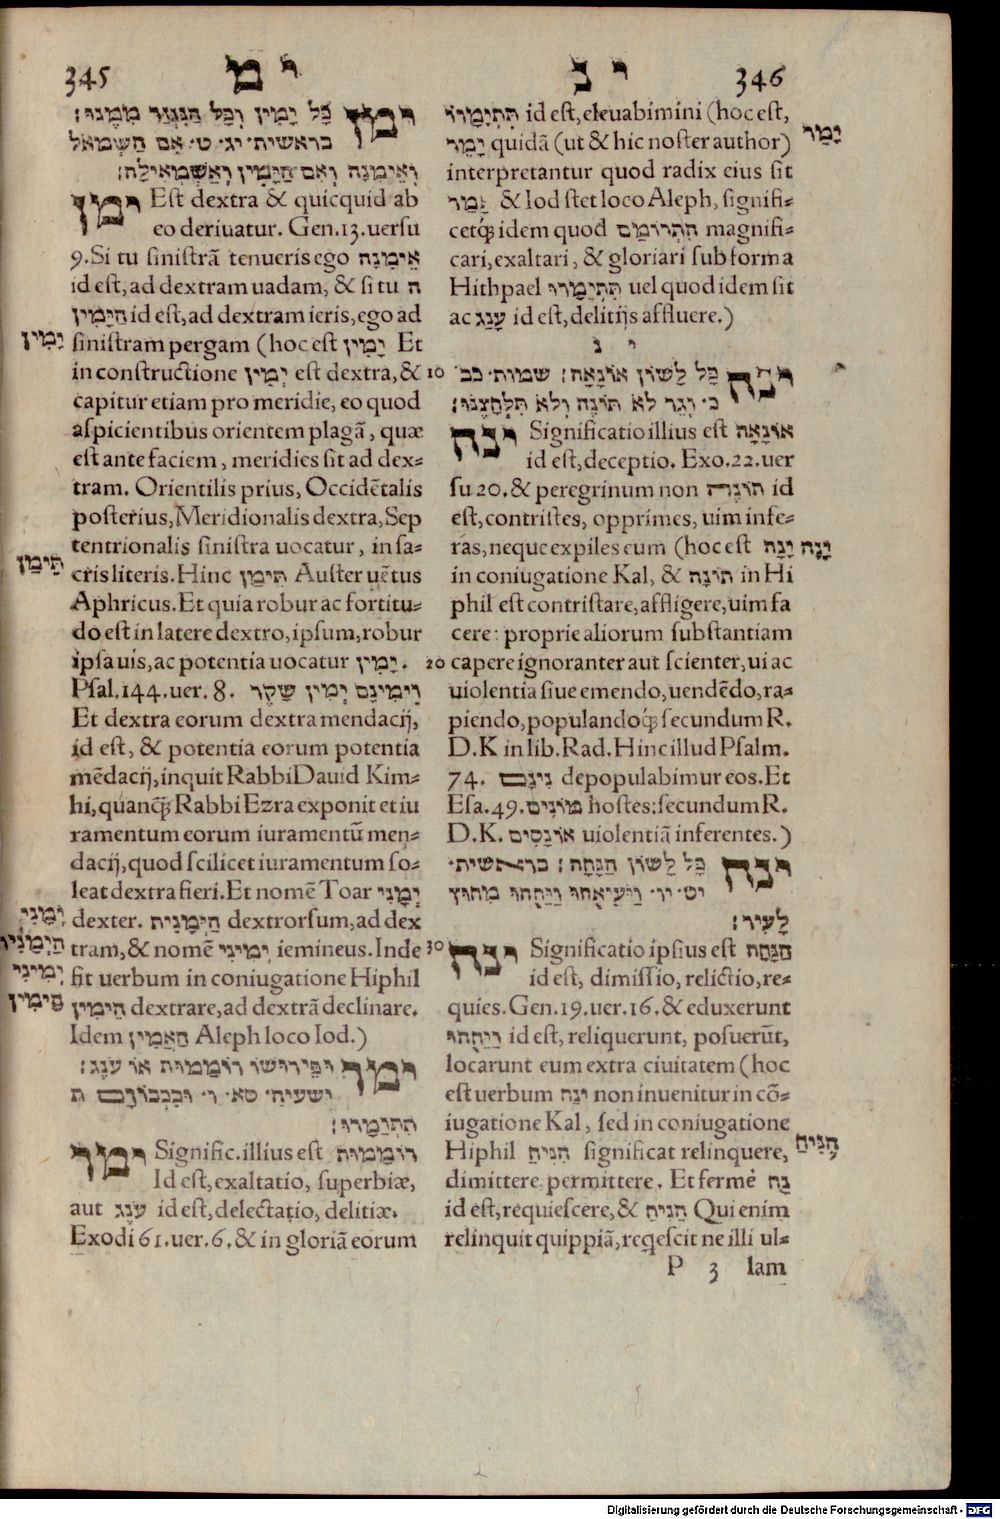 345 י מ
ימן כָּל יָמִין וְכָל הַנִּגְזָר מִמֶּנּוּ׃
בראשית· יג· ט· אִם הַשְּׂמֹאל
וְאֵימִנָה וְאִם הַיָּמִין וְאַשְׂמְאִילָה׃
ימן Est dextra & quicquid ab
eo deriuatur. Gen. 13. uersu
9. Si tu sinistrã tenueris ego אֵימִנָה
id est, ad dextram uadam, & si tu ה
הַיָּמִין id est, ad dextram ieris, ego ad
יָמִין sinistram pergam (hoc est יָמִין Et
in constructione יְמִין est dextra, & 10
capitur etiam pro meridie, eo quod
aspicientibus orientem plagã, quæ
est ante faciem, meridies sit ad dex=
tram. Orientilis prius, Occidẽtalis
posterius, Meridionalis dextra, Sep
tentrionalis sinistra uocatur, in sa=
תֵּימַן cris literis. Hinc תֵּימַן Auster uẽtus
Aphricus. Et quia robur ac fortitu=
do est in latere dextro, ipsum, robur
ipsa uis, ac potentia uocatur יָמִין. 20
Psal. 144. uer. 8. וִימִינָם יְמִין שָׁקֶר
Et dextra eorum dextra mendacij,
id est, & potentia eorum potentia
mẽdacij, inquit Rabbi Dauid Kim=
hi, quanq̃ Rabbi Ezra exponit et iu
ramentum eorum iuramentũ men=
dacij, quod scilicet iuramentum so=
leat dextra fieri. Et nomẽ Toar יְמָנִי
יְמָנִי dexter. הַיְמָנִית dextrorsum, ad dex
הַיְמָנִית tram, & nomẽ יְמִינִי iemineus. Inde 30
יְמִינִי fit uerbum in coniugatione Hiphil
הֵימִין הֵימִין dextrare, ad dextrã declinare.
Idem הַאֲמִין Aleph loco Iod.)
ימר וּפֵירוּשׁוֹ רוֹמֵמוּת אוֹ עֹנֶג׃
ישעיה· סא· ו· וּבִכְבוֹדָם ת
תִתְיַמָּרוּ׃
ימר Signific. illius est רוֹמֵמוּת
Id est, exaltatio, superbiæ,
aut עֹנֶג id est, delectatio, delitiæ.
Exodi 61. uer. 6. & in gloriã eorum
י נ 346
תִּתְיַמָּרוּ id est, eleuabimini (hoc est,
יָמַר יָמַר quidã (ut & hic noster author)
interpretantur quod radix eius sit
יָמַר & Iod stet loco Aleph, signifi=
cetq́ꝫ idem quod הִתְרוֹמֵם magnifi=
cari, exaltari, & gloriari sub forma
Hithpael תִּתְיַמָּרוּ uel quod idem sit
ac עָנַג id est, delitijs affluere.)
י נ
ינה כָּל לְשׁוֹן אוֹנָאָה׃ שמות· כב·
כ· וְגֵר לֹא תוֹנֶה וְלֹא תִלְחָצֶנּוּ׃
ינה Significatio illius est אוֹנָאָה
id est, deceptio. Exo. 22. uer
su 20. & peregrinum non תוֹנֶה id
est, contristes, opprimes, uim infe=
ras, neque expiles eum (hoc est יָנָה יָנָה
in coniugatione Kal, & הוֹנָה in Hi
phil est contristare, affligere, uim fa
cere: proprie aliorum substantiam
capere ignoranter aut scienter, ui ac
uiolentia siue emendo, uendẽdo, ra=
piendo, populandoq́ꝫ secundum R.
D. K in lib. Rad. Hinc illud Psalm.
74. נִינָם depopulabimur eos. Et
Esa. 49. מוֹנִים hostes: secundum R.
D. K. אוֹנְסִים uiolentiã inferentes.)
ינח כָּל לְשׁוֹן הַנָּחָה׃ בראשית·
יט· יו· וַיֹּצִיאֻהוּ וַיַּנִּחֻהוּ מִחוּץ
לָעִיר׃
ינח Significatio ipsius est הַנָּחָה
id est, dimissio, relictio, re=
quies. Gen. 19. uer. 16. & eduxerunt
וַיַּנִּחֻהוּ id est, reliquerunt, posuerũt,
locarunt eum extra ciuitatem (hoc
est uerbum יָנַח non inuenitur in cõ=
iugatione Kal, sed in coniugatione
הִנִּיחַ Hiphil הִנִּיחַ significat relinquere,
dimittere permittere. Et fermè נָח
id est, requiescere, & הֵנִיחַ Qui enim
relinquit quippiã, reqescit ne illi ul=
P 3 lam
Digitalisierung gefördert durch die Deutsche Forschungsgemeinschaft - DFG